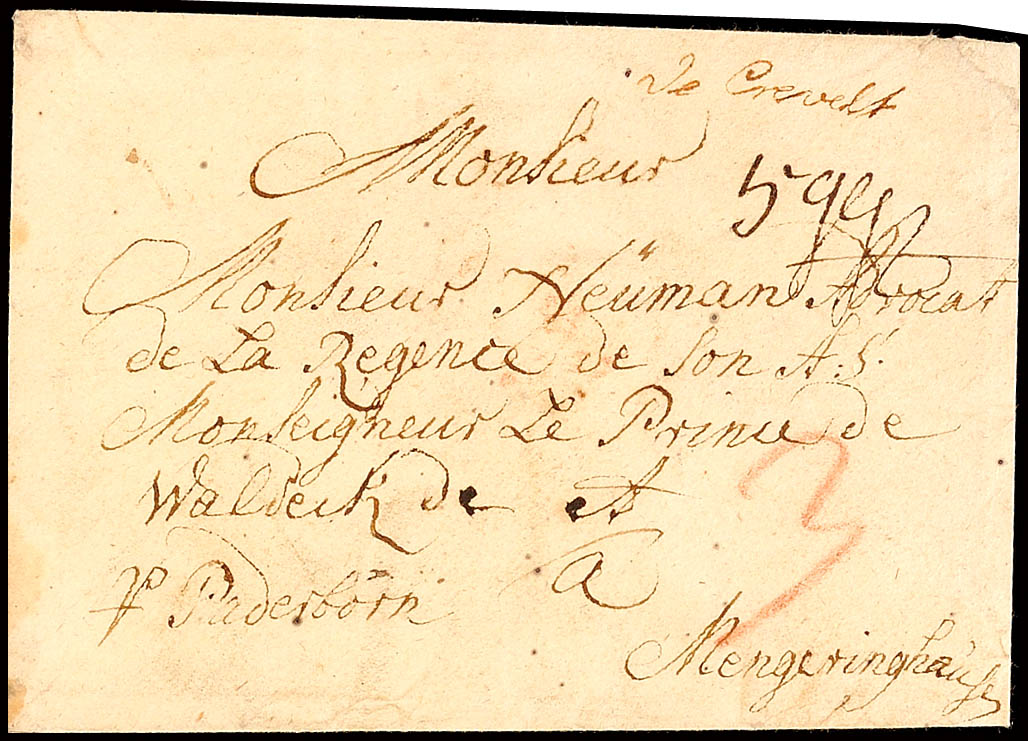 De Crevelt
Monsieur
Monsieur Neüman Advocat
de La Regence de Son A: S:
Monseigneur Le Prince de
Waldeck de A
a
pr Paderborn
Mengeringhausen
3